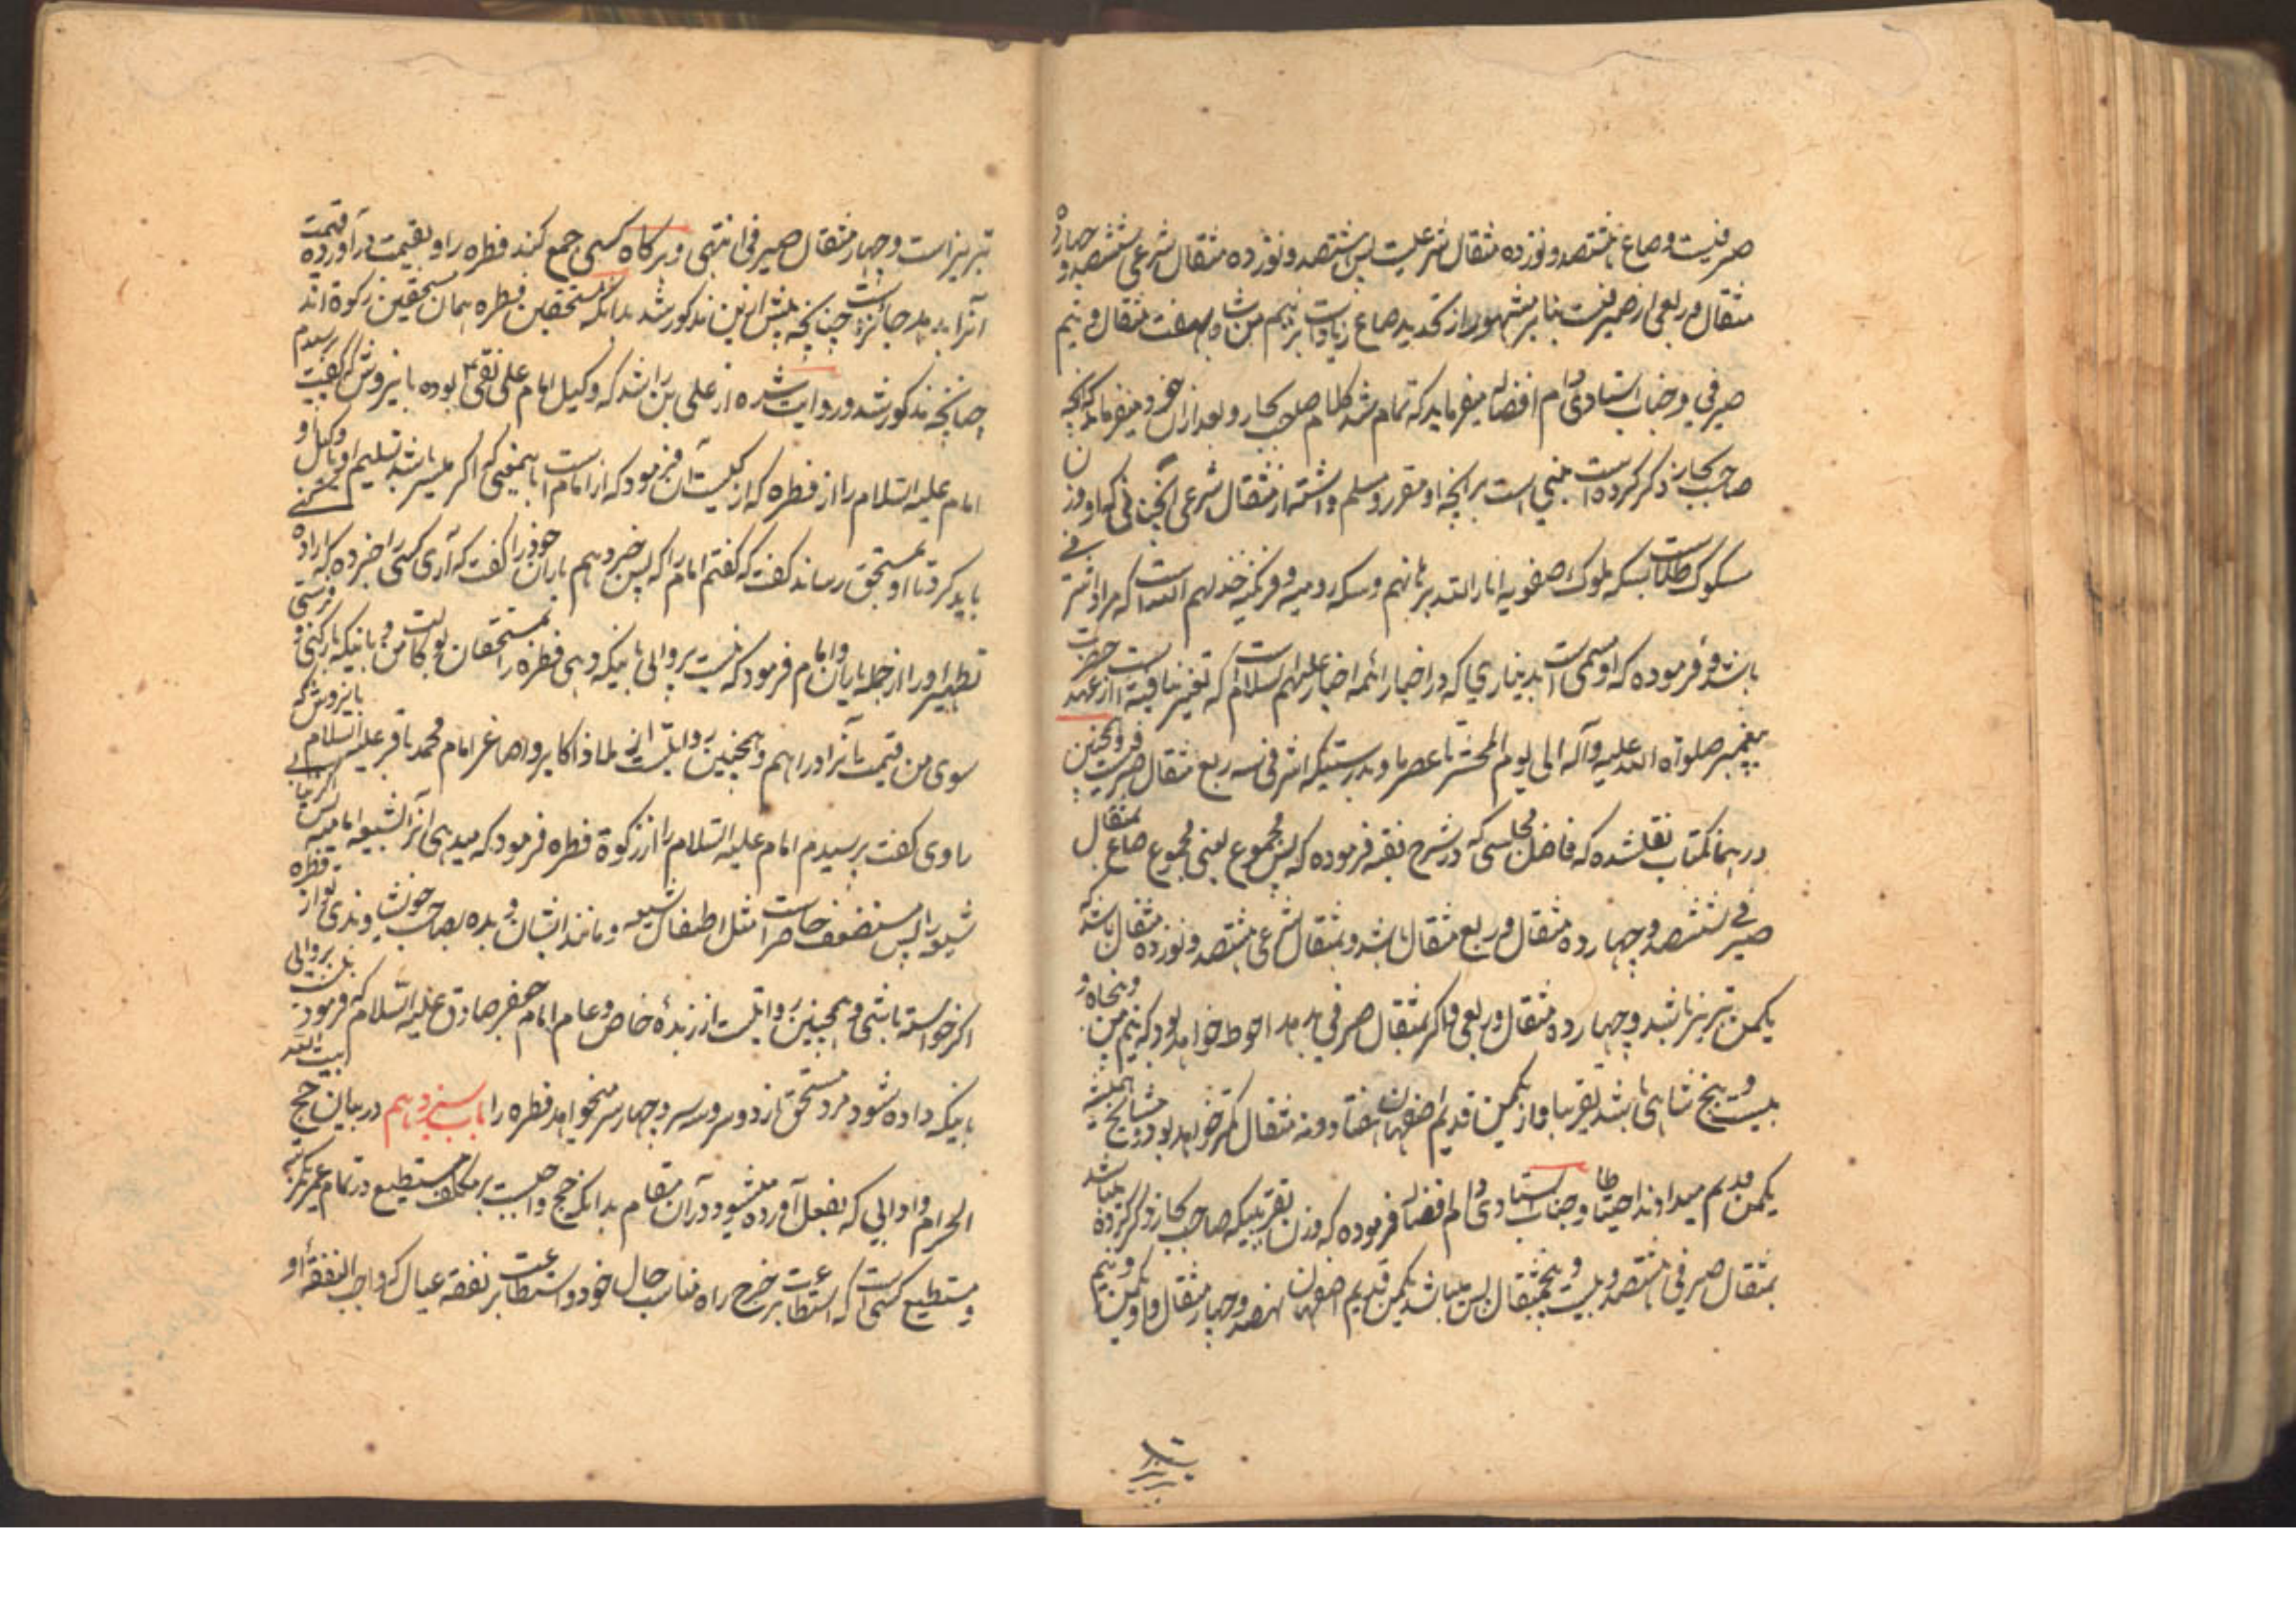 صیرفیست و صاع هشتصد و نوزده مثقال شرعیست پس هشتصد و نوزده مثقال شرعی ششصد و چهارده
مثقال و ربعی از صیرفیست بنابر مشهور و از تحدید صاع زیاد است بر نیم من شاه بهفت مثقال و نیم
صیرفی و جناب استادی دام افضاله میفرماید که تمام شد کلام صاحب بحار و بعد از آن خود میفرماید که آنچه
صاحب بحار ذکر کرده است مبنی است بر آنچه او مقرر و مسلم داشته از مثقال شرعی
مسکوک طلاست بسکه ملوک صفویه انار الله برهانهم و سکه رومیه و فرنگیه خذلهم الله است که مراد اشرفی
باشد و فرموده که او مسمی است بدیناری که در اخبار ائمه اخیار علیهم السلام است که تغییر نیافته است از عهد حضرت
پیغمبر صلواة الله علیه وآله الی یوم المحشر تا عصر ما و بدرستیکه اشرفی سه ربع مثقال صیرفیست و همچنین
در همان کتاب نقلشده که فاضل مجلسی که در شرح فقه فرموده که پس مجموع یعنی مجموع صاع بمثقال
صیرفی ششصد و چهارده مثقال و ربع مثقال باشد و بمثقال شرعی هشتصد و نوزده مثقال باشد که
یکمن تبریز باشد و چهارده مثقال و ربعی و اگر بمثقال صیرفی بدهد احوط خواهد بود که نیم من و پنجاه و
بیست و پنج شاهی باشد تقریبا و از یکمن قدیم اصفهان هفتاد و نه مثقال کمتر خواهد بود و مشایخ همیشه
یکمن قدیم میدادند احتیاطا و جناب استادی دام افضاله فرموده که وزن تقریبیکه صاحب بحار ذکر کرده میباشد
بمثقال صیرفی هشتصد و بیست و پنجمثقال پس میباشد یکمن قدیم اصفهان نهصد و چهار مثقال و او یکمن و نیم
تبریز است
تبریز است و چهار مثقال صیرفی انتهی و هرگاه کسی جمع کند فطره را و بقیمت در آورده قیمت
آنرا بدهد جائز است چنانچه پیش ازین مذکور شد بدانکه مستحقین فطره همان مستحقین زکوة اند
چنانچه مذکور شد و روایت شده از علی بن راشد که وکیل امام علی نقی ع بوده باینروش که گفت پرسیدم
امام علیه السلام را از فطره که از کیست آن فرمود که از امام است باینمعنی که اگر میسر باشد تسلیم او یا وکیل او
باید کرد تا او بمستحق رساند گفت که گفتم امام را که پس خبر دهم یاران خود را گفت که آری کسی را خبر ده که اراده
تطهیر او را از جمله یاران و امام فرمود که نیست پروائی باینکه دهی فطره را بمستحقان بوکالت من و باینکه بار کنی و فرستی
سوی من قیمت آنرا دراهم و همچنین روایتست از ملاذ اکابر و اصاغر امام محمد باقر علیه السلام باینروش که
راوی گفت پرسیدم امام علیه السلام را از زکوة فطره فرمود که میدهی آنرا بشیعه امامیه
شیعه را پس مستضعف خاص است مثل اطفال شیعه و مانند ایشان و بده بصاحب خویشاوندی تو از فطره
اگر خواسته باشی و همچنین روایتست از زبدهٔ خاص و عام امام جعفر صادق علیه السلام که فرمود نیست پروائی
باینکه داده شود مرد مستحق از دو سر و سه سر و چهار سر میخواهد فطره را باب سیزدهم در بیان حج بیت الله
الحرام و اوابی که بفعل آورده میشود در آن مقام بدانکه حج واجبست بر مکلف مستطیع در تمام عمر یکمرتبه
و مستطیع کسی است که استطاعت بر خرج راه مناسب حال خود و استطاعت بر نفقه عیال که واجب النفقه او